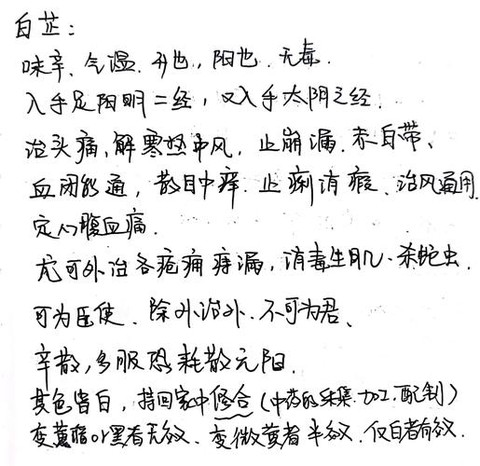 白芷：
味辛、气温．升也，阳也．无毒．
入手足阳明二经，又入手太阴之经．
治头痛，解寒热中风，止崩漏．赤白带、
血闭能通，散目中痒．止痢消瘕．治风通用．
定心腹血痛．
尤可外治各疮痈痔漏，消毒生肌．杀蛇虫．
可为臣使．除外治外．不可为君、
辛散，多服恐耗散元阳．
其色皆白，持回家中修合（中药的采集．加工．配制）
变黄暗or黑者无效．变微黄者半效．仅白者有效．